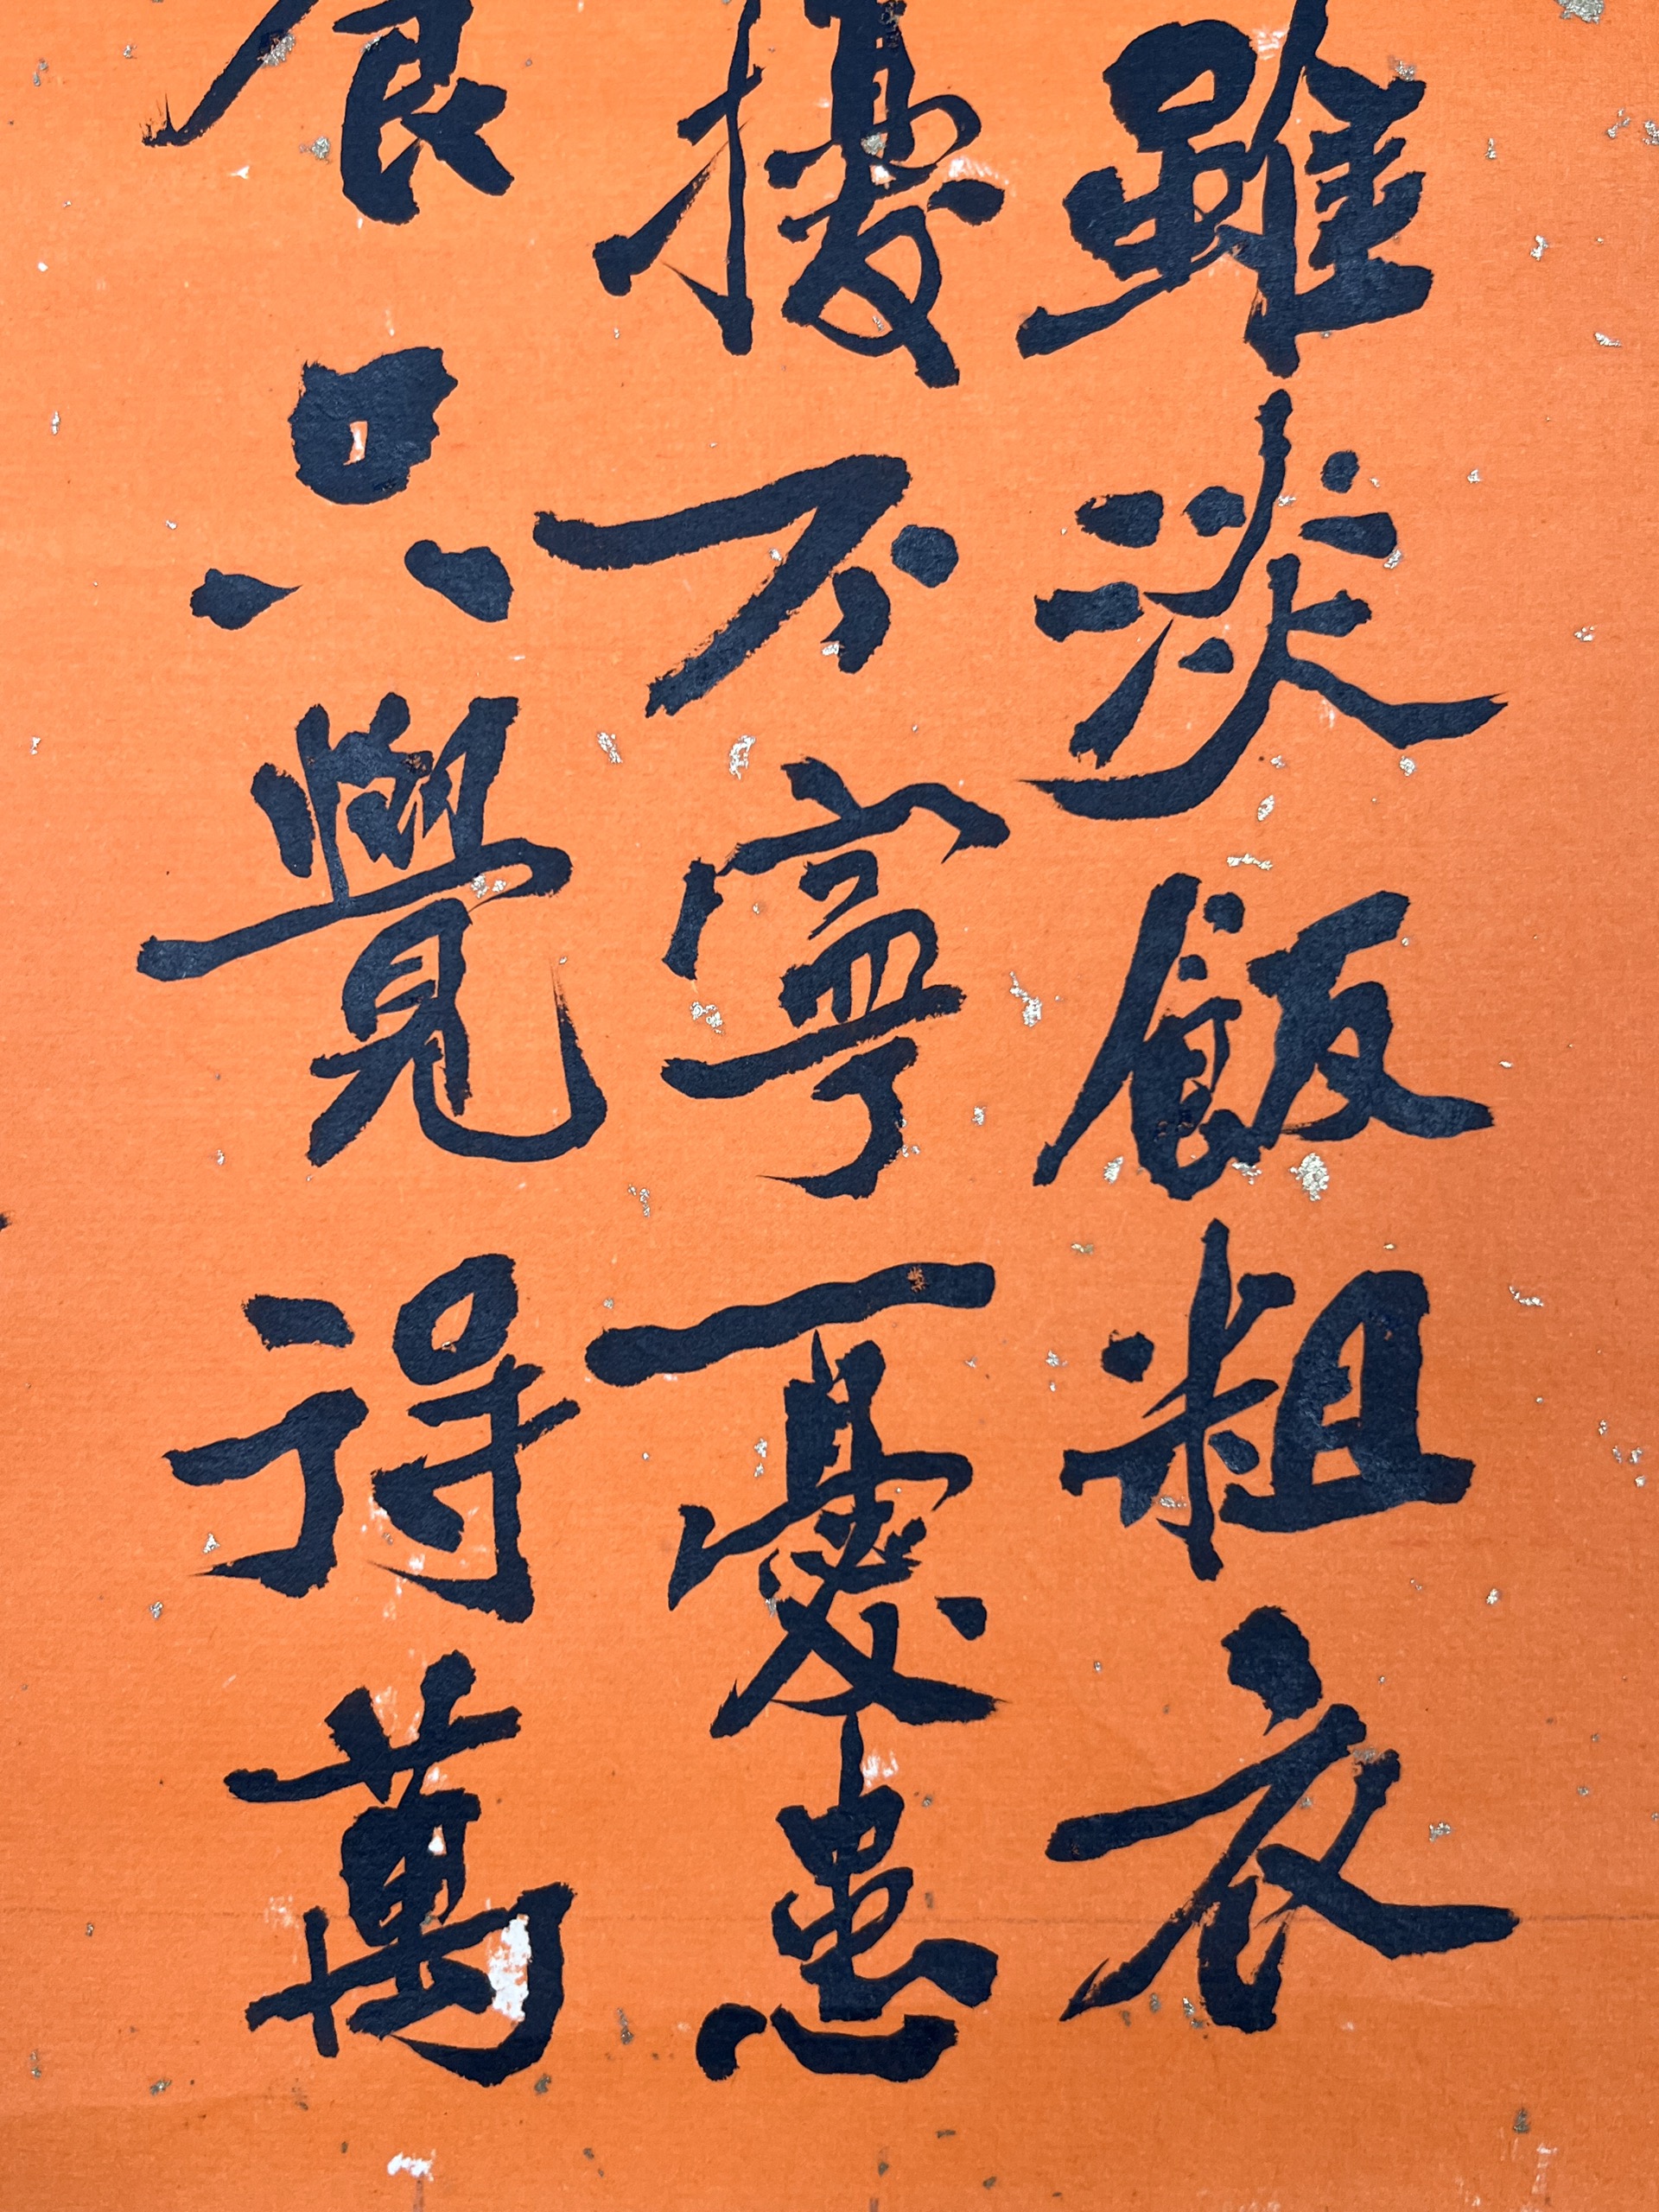 雖淡飯粗衣
擾不寧憂患
食只覺得萬